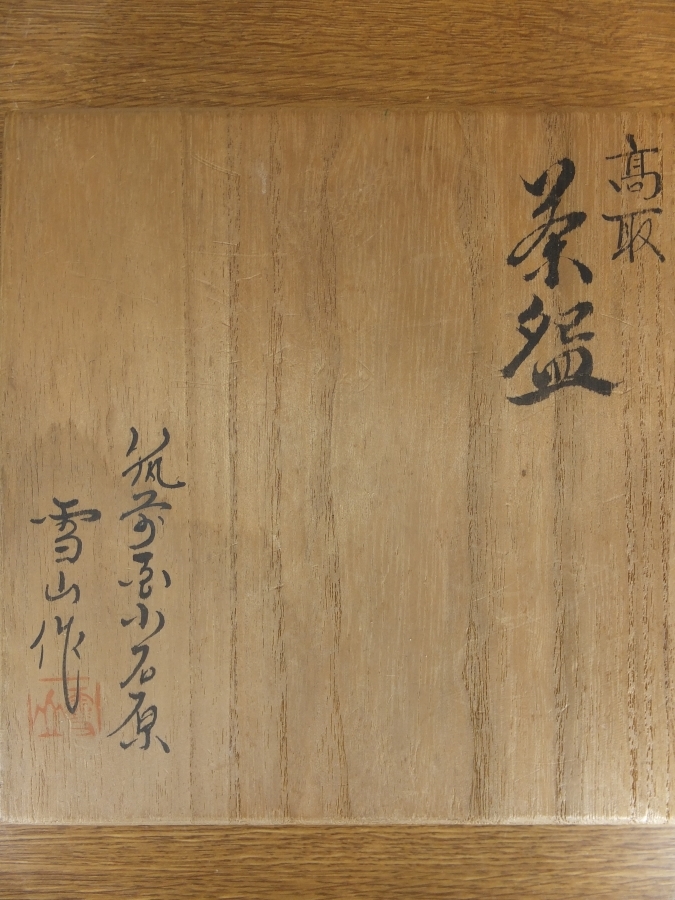 髙取
茶盌
筑前国小石原
雪山作